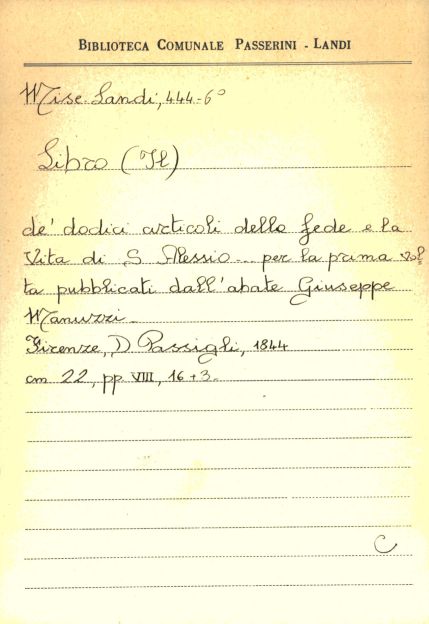 BIBLIOTECA COMUNALE PASSERINI - LANDI
Misc. Landi, 444-6°
Libro (Il)
de' dodici articoli della fede e la
Vita di S. Alessio... per la prima vol=
ta pubblicati dall'abate Giuseppe
Manuzzi.
Firenze, D. Passigli, 1844
cm 22, pp. VIII, 16+3.
C